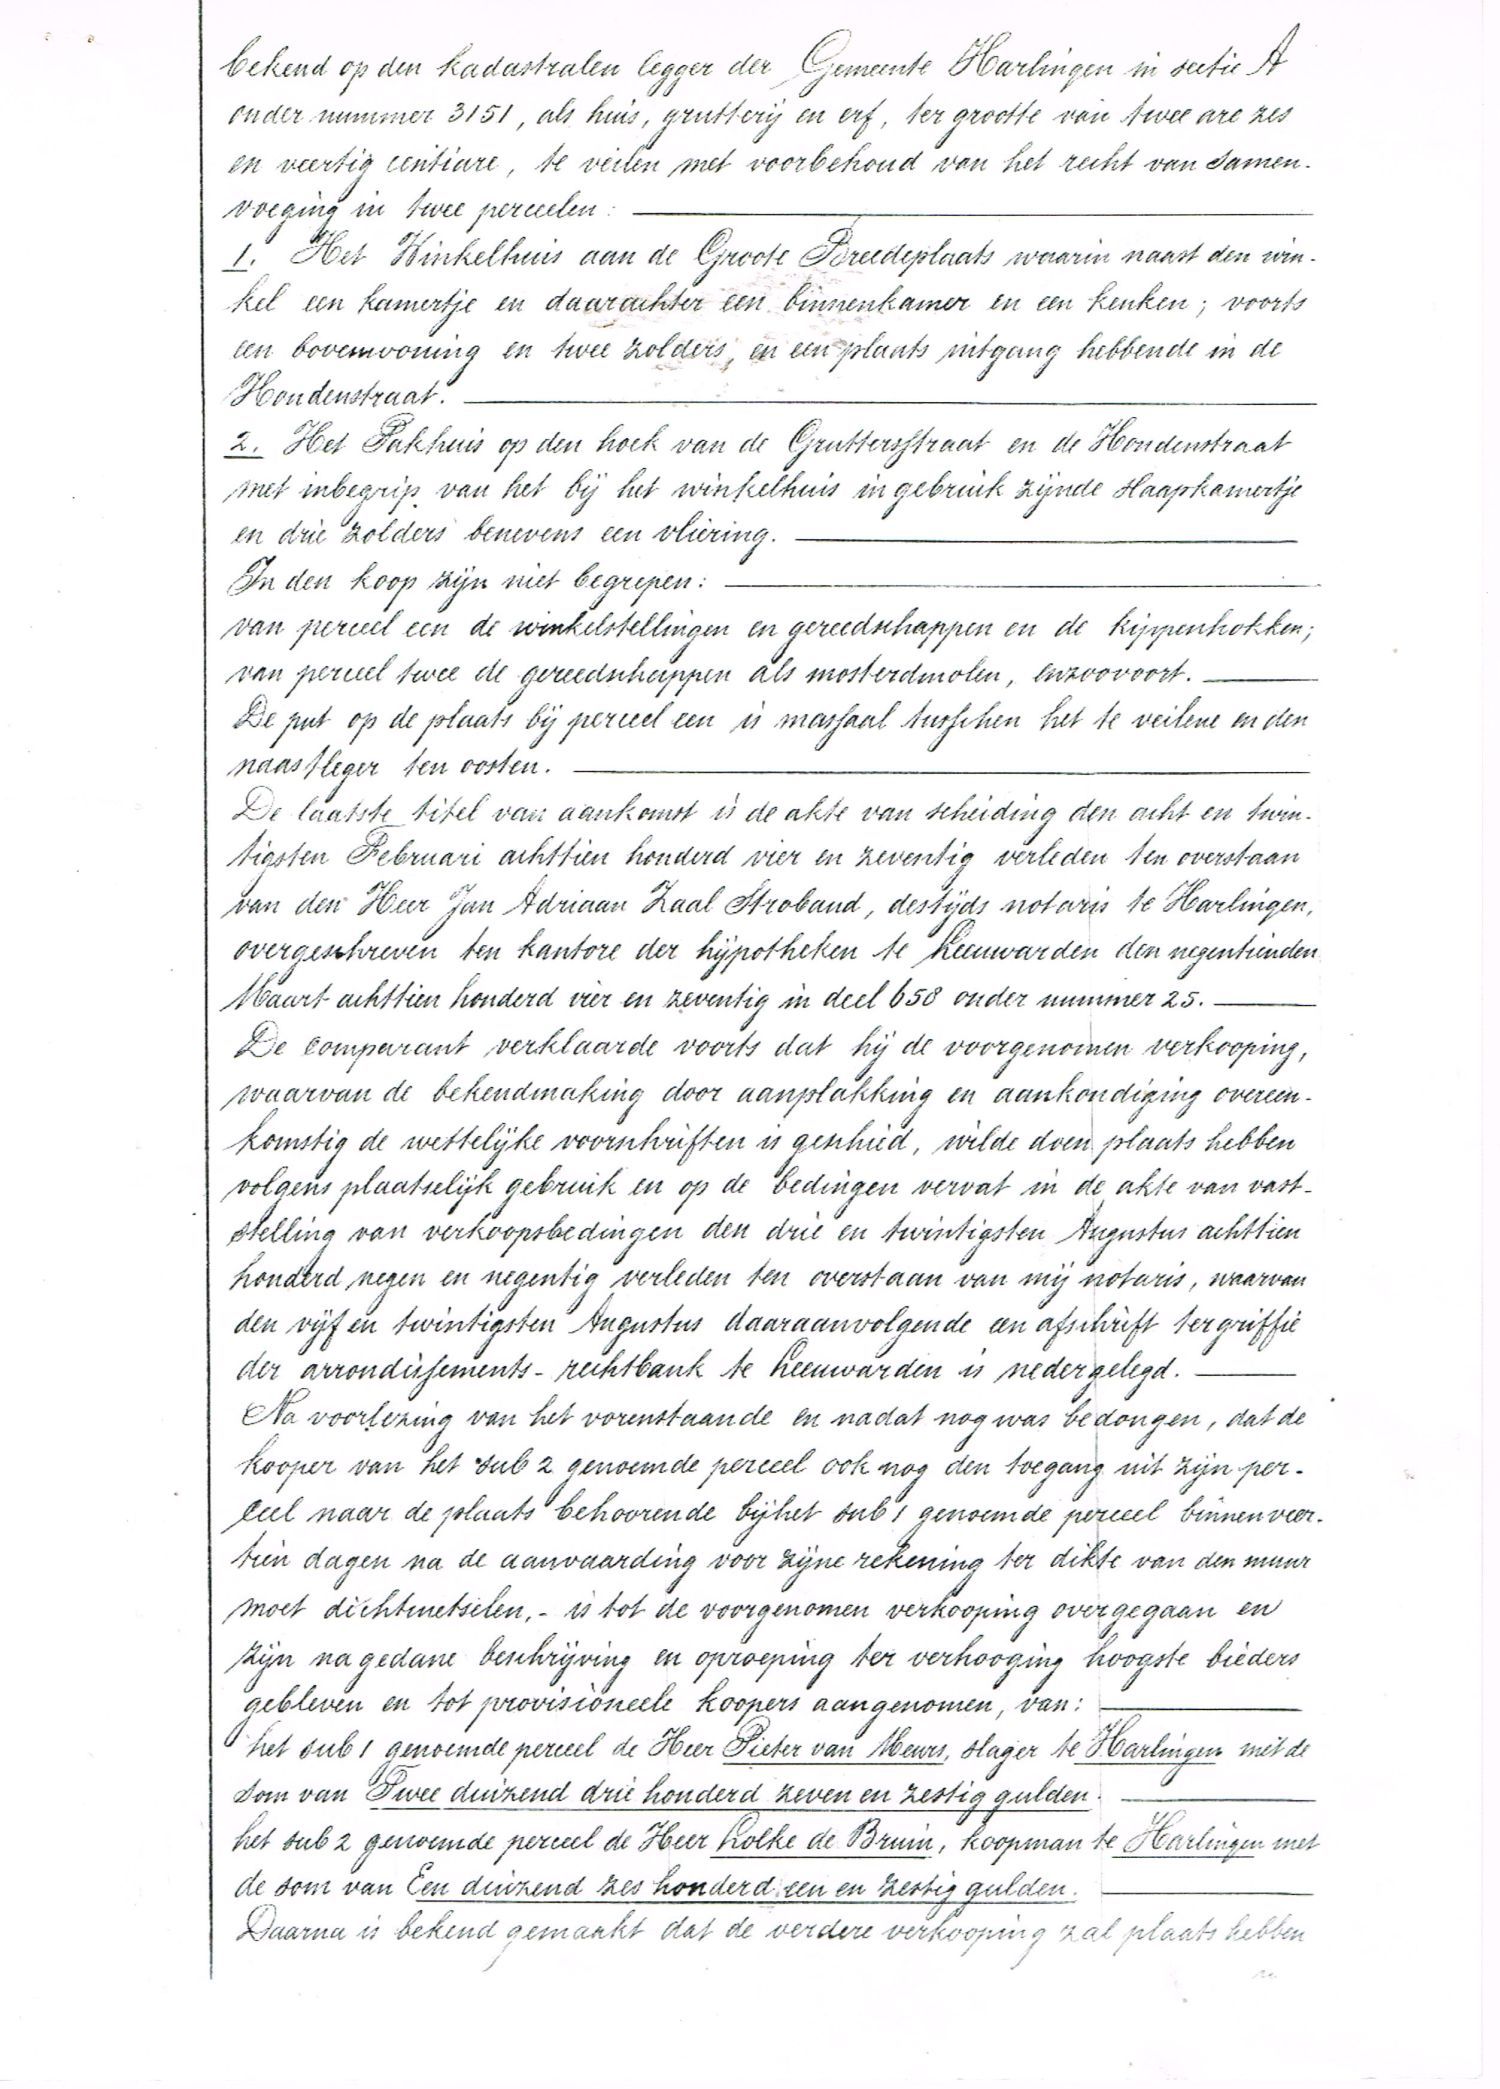 bekend op den kadastralen legger der Gemeente Harlingen in sectie A
onder nummer 3151, als huis, grutterij en erf, ter grootte van twee are zes
en veertig centiare, te veilen met voorbehoud van het recht van samen-
voeging in twee perceelen:
1. Het Winkelhuis aan de Groote Breedeplaats waarin naast den win-
kel een kamertje en daarachter een binnenkamer en een keuken; voorts
een bovenwoning en twee zolders, en een plaats uitgang hebbende in de
Hondenstraat.
2. Het Pakhuis op den hoek van de Gruttersstraat en de Hondenstraat
met inbegrip van het bij het winkelhuis in gebruik zijnde slaapkamertje
en drie zolders benevens een vliering.
In den koop zijn niet begrepen:
van perceel een de winkelstellingen en gereedschappen en de kippenhokken;
van perceel twee de gereedschappen als mosterdmolen, enzoovoort.
De put op de plaats bij perceel een is massaal tusschen het te veilene en den
naastleger ten oosten.
De laatste titel van aankomst is de akte van scheiding den acht en twin-
tigsten Februari achttien honderd vier en zeventig verleden ten overstaan
van den Heer Jan Adriaan Zaal Stroband, destijds notaris te Harlingen,
overgeschreven ten kantore der hypotheken te Leeuwarden den negentienden
Maart achttien honderd vier en zeventig in deel 658 onder nummer 25.
De comparant verklaarde voorts dat hij de voorgenomen verkooping,
waarvan de bekendmaking door aanplakking en aankondiging overeen-
komstig de wettelijke voorschriften is geschied, wilde doen plaats hebben
volgens plaatselijk gebruik en op de bedingen vervat in de akte van vast-
stelling van verkoopsbedingen den drie en twintigsten Augustus achttien
honderd negen en negentig verleden ten overstaan van mij notaris, waarvan
den vijf en twintigsten Augustus daaraanvolgende een afschrift ter griffie
der arrondissements-rechtbank te Leeuwarden is nedergelegd.
Na voorlezing van het vorenstaande en nadat nog was bedongen, dat de
kooper van het sub 2 genoemde perceel ook nog den toegang uit zijn per-
ceel naar de plaats behoorende bij het sub 1 genoemde perceel binnen veer-
tien dagen na de aanvaarding voor zijne rekening ter dikte van den muur
moet dichtmetselen,- is tot de voorgenomen verkooping overgegaan en
zijn na gedane beschrijving en oproeping ter verhooging hoogste bieders
gebleven en tot provisioneele koopers aangenomen, van:
het sub 1 genoemde perceel de Heer Pieter van Meurs, slager te Harlingen met de
som van Twee duizend drie honderd zeven en zestig gulden.
het sub 2 genoemde perceel de Heer Lolke de Bruin, koopman te Harlingen met
de som van Een duizend zes honderd een en zestig gulden.
Daarna is bekend gemaakt dat de verdere verkooping zal plaats hebben